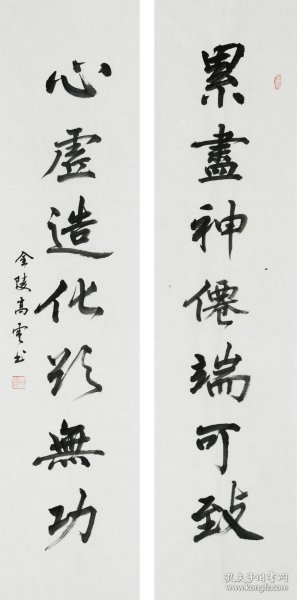 累盡神僊端可致
心虛造化欲無功
金陵高雲书
孔夫子旧书网